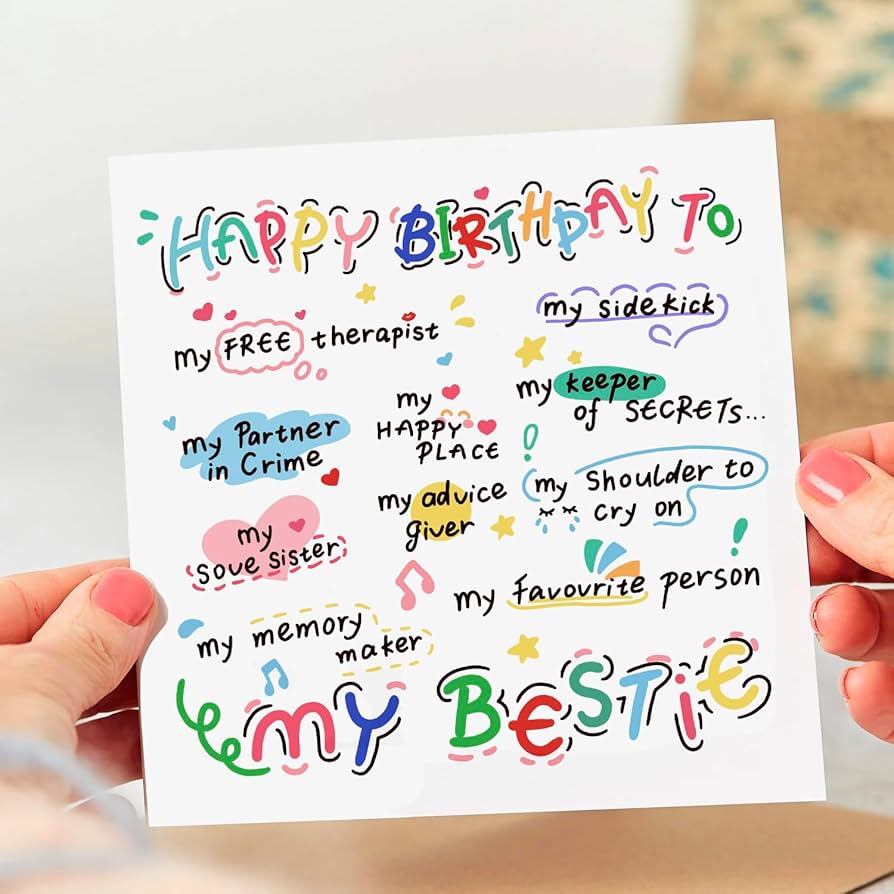 HAPPY BIRTHDAY TO
my FREE therapist
my side kick
my keeper
of SECRETS...
my
HAPPY
PLACE
my Partner
in Crime
my advice
giver
my shoulder to
cry on
my
sove sister
my favourite person
my memory
maker
MY BESTiE